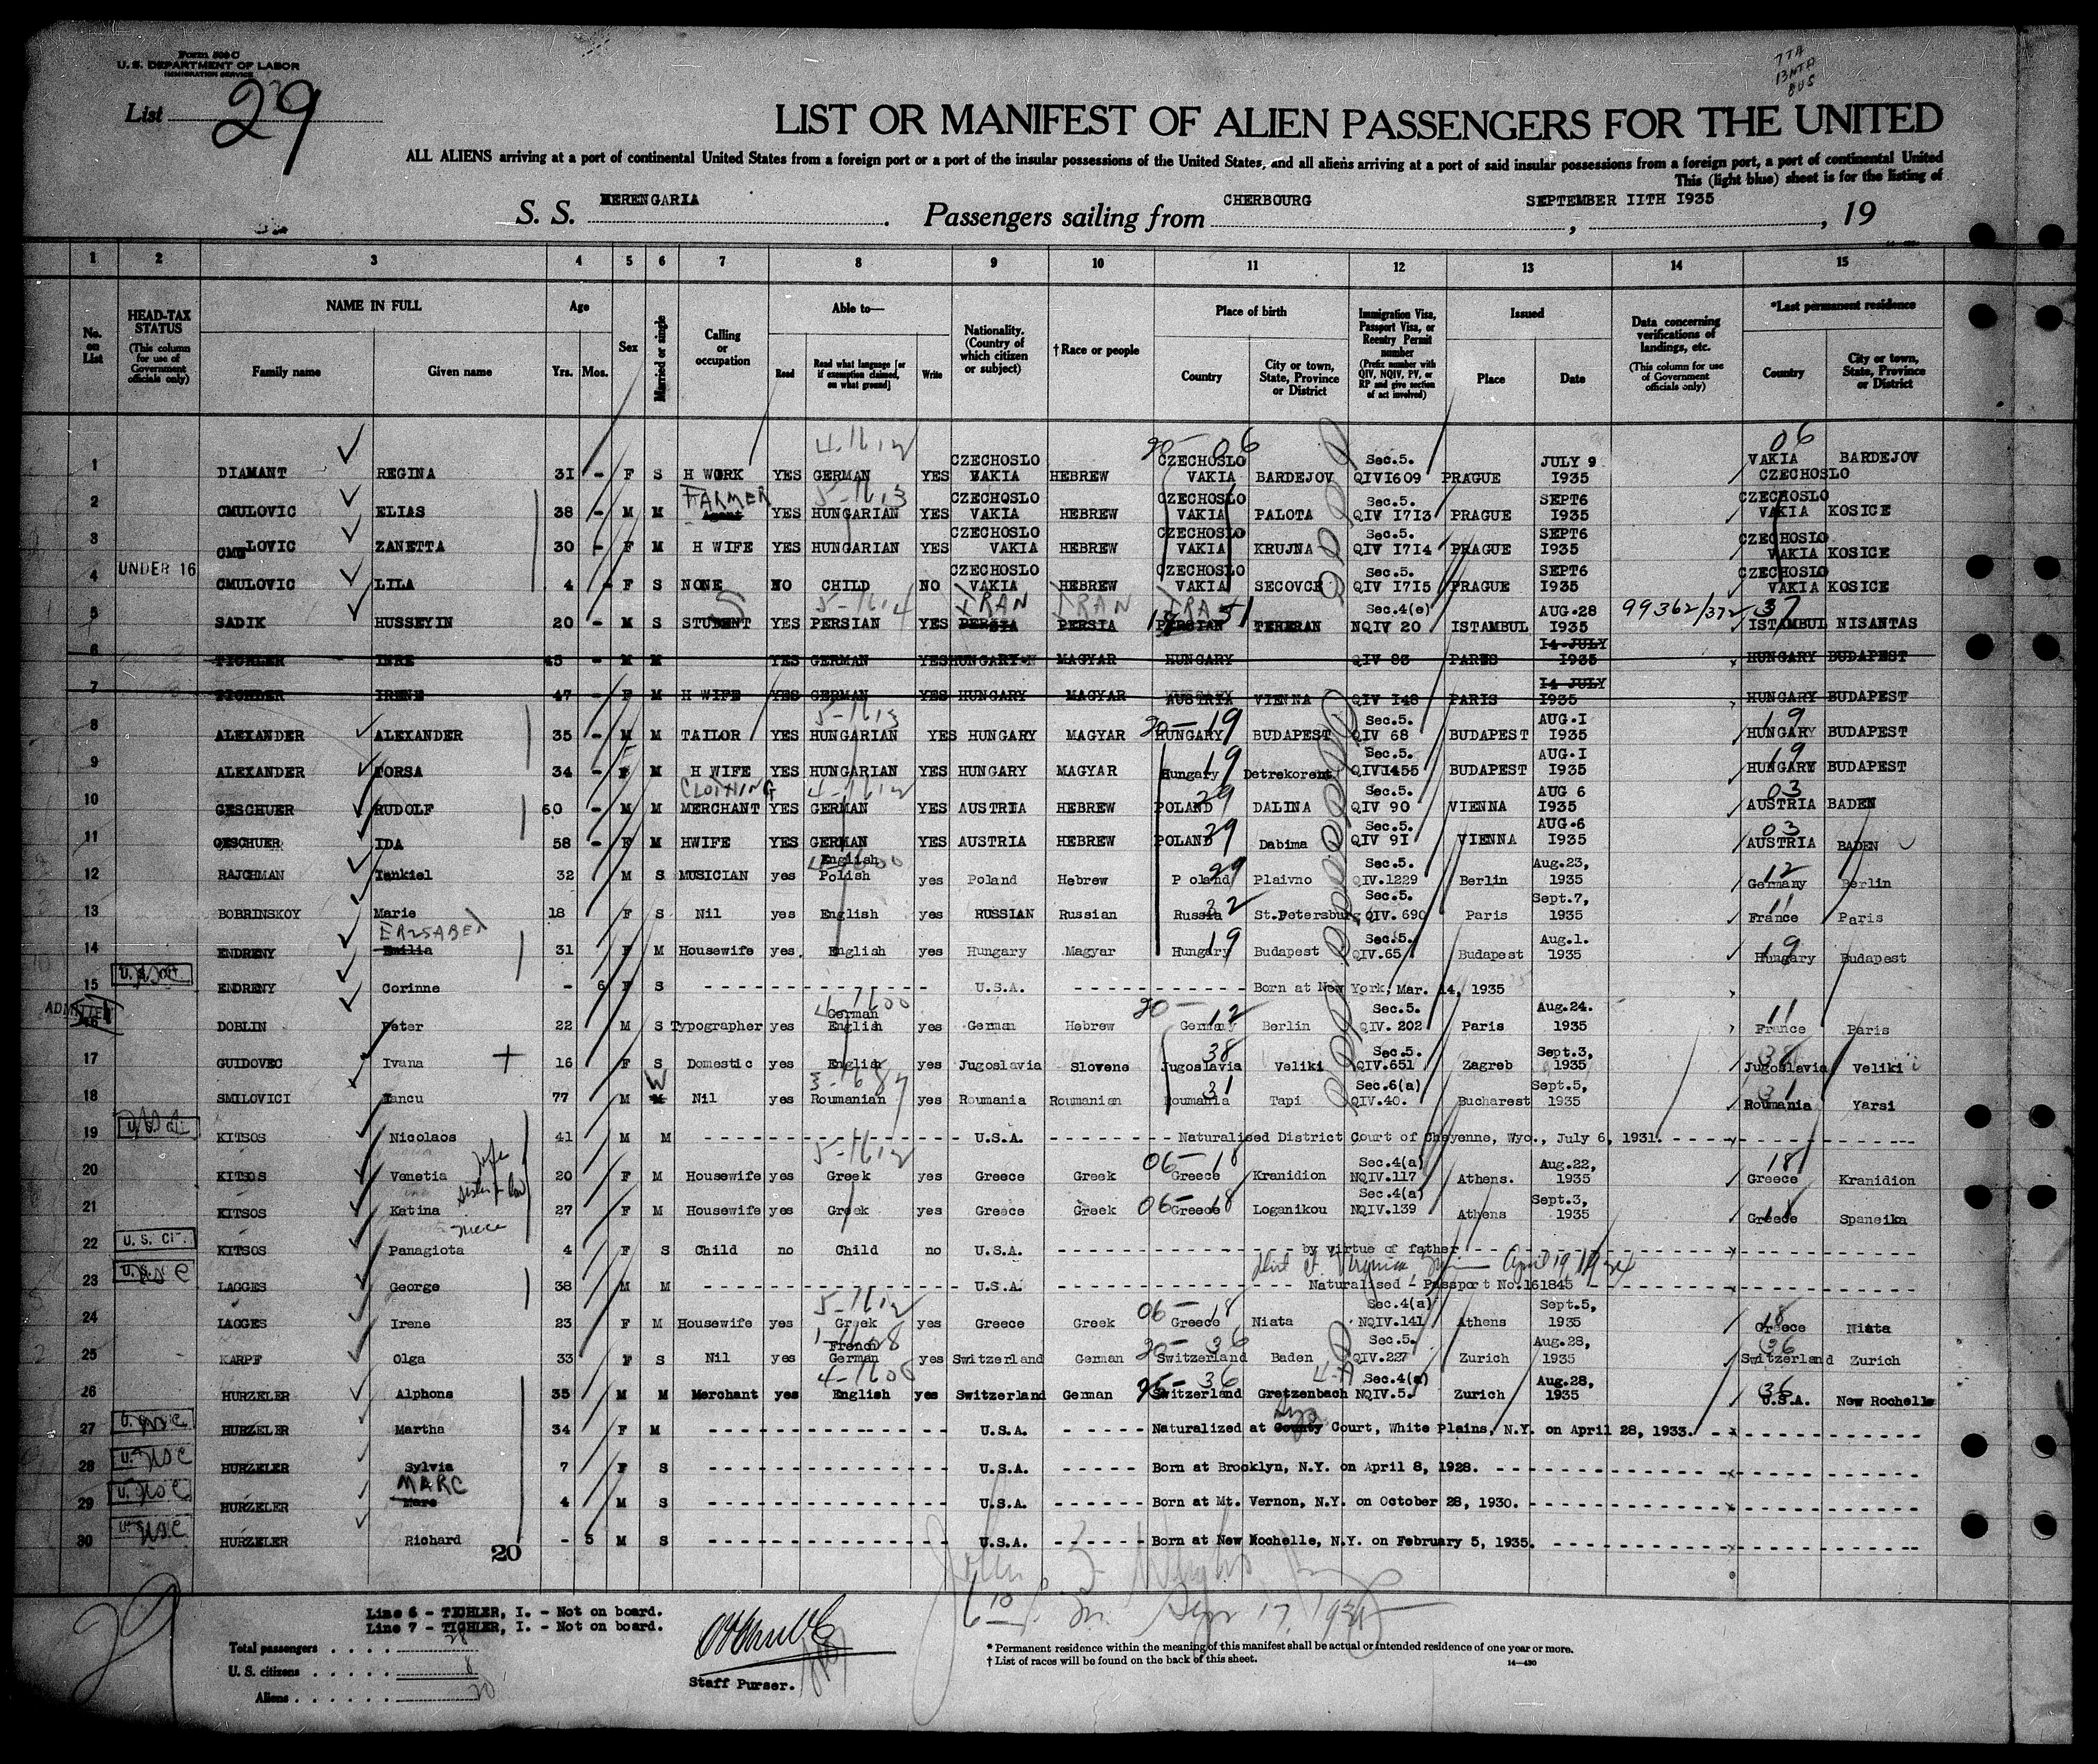 Form 500 C
U. S. DEPARTMENT OF LABOR
IMMIGRATION SERVICE
List 29
LIST OR MANIFEST OF ALIEN PASSENGERS FOR THE UNITED
ALL ALIENS arriving at a port of continental United States from a foreign port or a port of the insular possessions of the United States, and all aliens arriving at a port of said insular possessions from a foreign port, a port of continental United
This (light blue) sheet is for the listing of
S. S. BERENGARIA. Passengers sailing from CHERBOURG, SEPTEMBER IITH I935, 19
1 2 3 4 5 6 7 8 9 10 11 12 13 14 15
No. on List
HEAD-TAX STATUS (This column for use of Government officials only)
NAME IN FULL Family name Given name
Age Yrs. Mos.
Sex
Married or single
Calling or occupation
Able to— Read Read what language [or if exemption claimed, on what ground] Write
Nationality. (Country of which citizen or subject)
†Race or people
Place of birth Country City or town, State, Province or District
Immigration Visa, Passport Visa, or Reentry Permit number (Prefix number with QIV, NQIV, PV, or RP and give section of act involved)
Issued Place Date
Data concerning verifications of landings, etc. (This column for use of Government officials only)
*Last permanent residence Country City or town, State, Province or District
1 DIAMANT REGINA 31 - F S H WORK YES GERMAN YES CZECHOSLO VAKIA HEBREW CZECHOSLO VAKIA BARDEJOV Sec.5. QIVI609 PRAGUE JULY 9 I935 VAKIA CZECHOSLO BARDEJOV
2 CMULOVIC ELIAS 38 - M M FARMER Agent YES HUNGARIAN YES CZECHOSLO VAKIA HEBREW CZECHOSLO VAKIA PALOTA Sec.5. QIV I7I3 PRAGUE SEPT6 I935 CZECHOSLO VAKIA KOSICE
3 CMULOVIC ZANETTA 30 - F M H WIFE YES HUNGARIAN YES CZECHOSLO VAKIA HEBREW CZECHOSLO VAKIA KRUJNA Sec.5. QIV I7I4 PRAGUE SEPT6 I935 CZECHOSLO VAKIA KOSICE
4 UNDER 16 CMULOVIC LILA 4 - F S NONE NO CHILD NO CZECHOSLO VAKIA HEBREW CZECHOSLO VAKIA SECOVCE Sec.5. QIV I7I5 PRAGUE SEPT6 I935 CZECHOSLO VAKIA KOSICE
5 SADIK HUSSEYIN 20 - M S STUDENT YES PERSIAN YES IRAN PERSIA IRAN PERSIA IRAN PERSIAN TEHERAN Sec.4(e) NQIV 20 ISTAMBUL AUG-28 I935 99362/372 ISTAMBUL NISANTAS
6 TICHLER IMRE 45 - M M YES GERMAN YES HUNGARY MAGYAR HUNGARY QIV 83 PARIS I4-JULY I935 HUNGARY BUDAPEST
7 TICHLER IRENE 47 - F M H WIFE YES GERMAN YES HUNGARY MAGYAR AUSTRIA VIENNA QIV I48 PARIS I4 JULY I935 HUNGARY BUDAPEST
8 ALEXANDER ALEXANDER 35 - M M TAILOR YES HUNGARIAN YES HUNGARY MAGYAR HUNGARY BUDAPEST Sec.5. QIV 68 BUDAPEST AUG-I I935 HUNGARY BUDAPEST
9 ALEXANDER TORSA 34 - F M H WIFE YES HUNGARIAN YES HUNGARY MAGYAR Hungary Detrekorent Sec.5. QIVI455 BUDAPEST AUG-I I935 HUNGARY BUDAPEST
10 GESCHUER RUDOLF 60 - M M CLOTHING MERCHANT YES GERMAN YES AUSTRIA HEBREW POLAND DALINA Sec.5. QIV 90 VIENNA AUG 6 I935 AUSTRIA BADEN
11 GESCHUER IDA 58 - F M HWIFE YES GERMAN YES AUSTRIA HEBREW POLAND Dabima Sec.5. QIV 9I VIENNA AUG-6 I935 AUSTRIA BADEN
12 RAJCHMAN Iankiel 32 M S MUSICIAN yes English Polish yes Poland Hebrew Poland Plaivno Sec.5. QIV.1229 Berlin Aug.23, 1935 Germany Berlin
13 BOBRINSKOY Marie 18 F S Nil yes English yes RUSSIAN Russian Russia St.Petersburg Sec.5. QIV. 690 Paris Sept.7, 1935 France Paris
14 ENDRENY ERZSABET Emilia 31 F M Housewife yes. English yes Hungary Magyar Hungary Budapest Sec.5. QIV.65 Budapest Aug.1. 1935 Hungary Budapest
15 ENDRENY Corinne - 6 F S U.S.A. Born at New York, Mar. 14, 1935
ADMITTED 16 DOBLIN Peter 22 M S Typographer yes German English yes German Hebrew Germany Berlin Sec.5. QIV. 202 Paris Aug.24. 1935 France Paris
17 GUIDOVEC Ivana 16 F S Domestic yes English yes Jugoslavia Slovene Jugoslavia Veliki Sec.5. QIV.651 Zagreb Sept.3, 1935 Jugoslavia Veliki
18 SMILOVICI Iancu 77 M W Nil yes Roumanian yes Roumania Roumanian Roumania Tapi Sec.6(a) QIV.40. Bucharest Sept.5, 1935 Roumania Yarsi
19 KITSOS Nicolaos 41 M M U.S.A. Naturalised District Court of Cheyenne, Wyo., July 6, 1931.
20 KITSOS Venetia wife 20 F M Housewife yes Greek yes Greece Greek Greece Kranidion Sec.4(a) NQIV.117 Athens. Aug.22, 1935 Greece Kranidion
21 KITSOS Katina sister in law 27 F M Housewife yes Greek yes Greece Greek Greece Loganikou Sec.4(a) NQIV.139 Athens Sept.3, 1935 Greece Spaneika
22 U. S. CIT. KITSOS Panagiota niece 4 F S Child no Child no U.S.A. by virtue of father
23 LAGGES George 38 M M U.S.A. Naturalised Passport No.161845
24 LAGGES Irene 23 F M Housewife yes Greek yes Greece Greek Greece Niata Sec.4(a) NQIV.141 Athens Sept.5, 1935 Greece Niata
25 KARPF Olga 33 F S Nil yes French German yes Switzerland German Switzerland Baden Sec.5. QIV.227 Zurich Aug.28, 1935 Switzerland Zurich
26 HURZELER Alphons 35 M M Merchant yes English yes Switzerland German Switzerland Gretzenbach Sec.4(a) NQIV.5. Zurich Aug.28, 1935 U.S.A. New Rochelle
27 HURZELER Martha 34 F M U.S.A. Naturalized at County Court, White Plains, N.Y. on April 28, 1933.
28 HURZELER Sylvia 7 F S U.S.A. Born at Brooklyn, N.Y. on April 8, 1928.
29 HURZELER MARC Marc 4 M S U.S.A. Born at Mt. Vernon, N.Y. on October 28, 1930.
30 HURZELER Richard - 5 M S U.S.A. Born at New Rochelle, N.Y. on February 5, 1935.
20
Line 6 - TICHLER, I. - Not on board.
Line 7 - TICHLER, I. - Not on board.
Total passengers 28
U. S. citizens 8
Aliens 20
Staff Purser.
* Permanent residence within the meaning of this manifest shall be actual or intended residence of one year or more.
† List of races will be found on the back of this sheet.
14—430
29